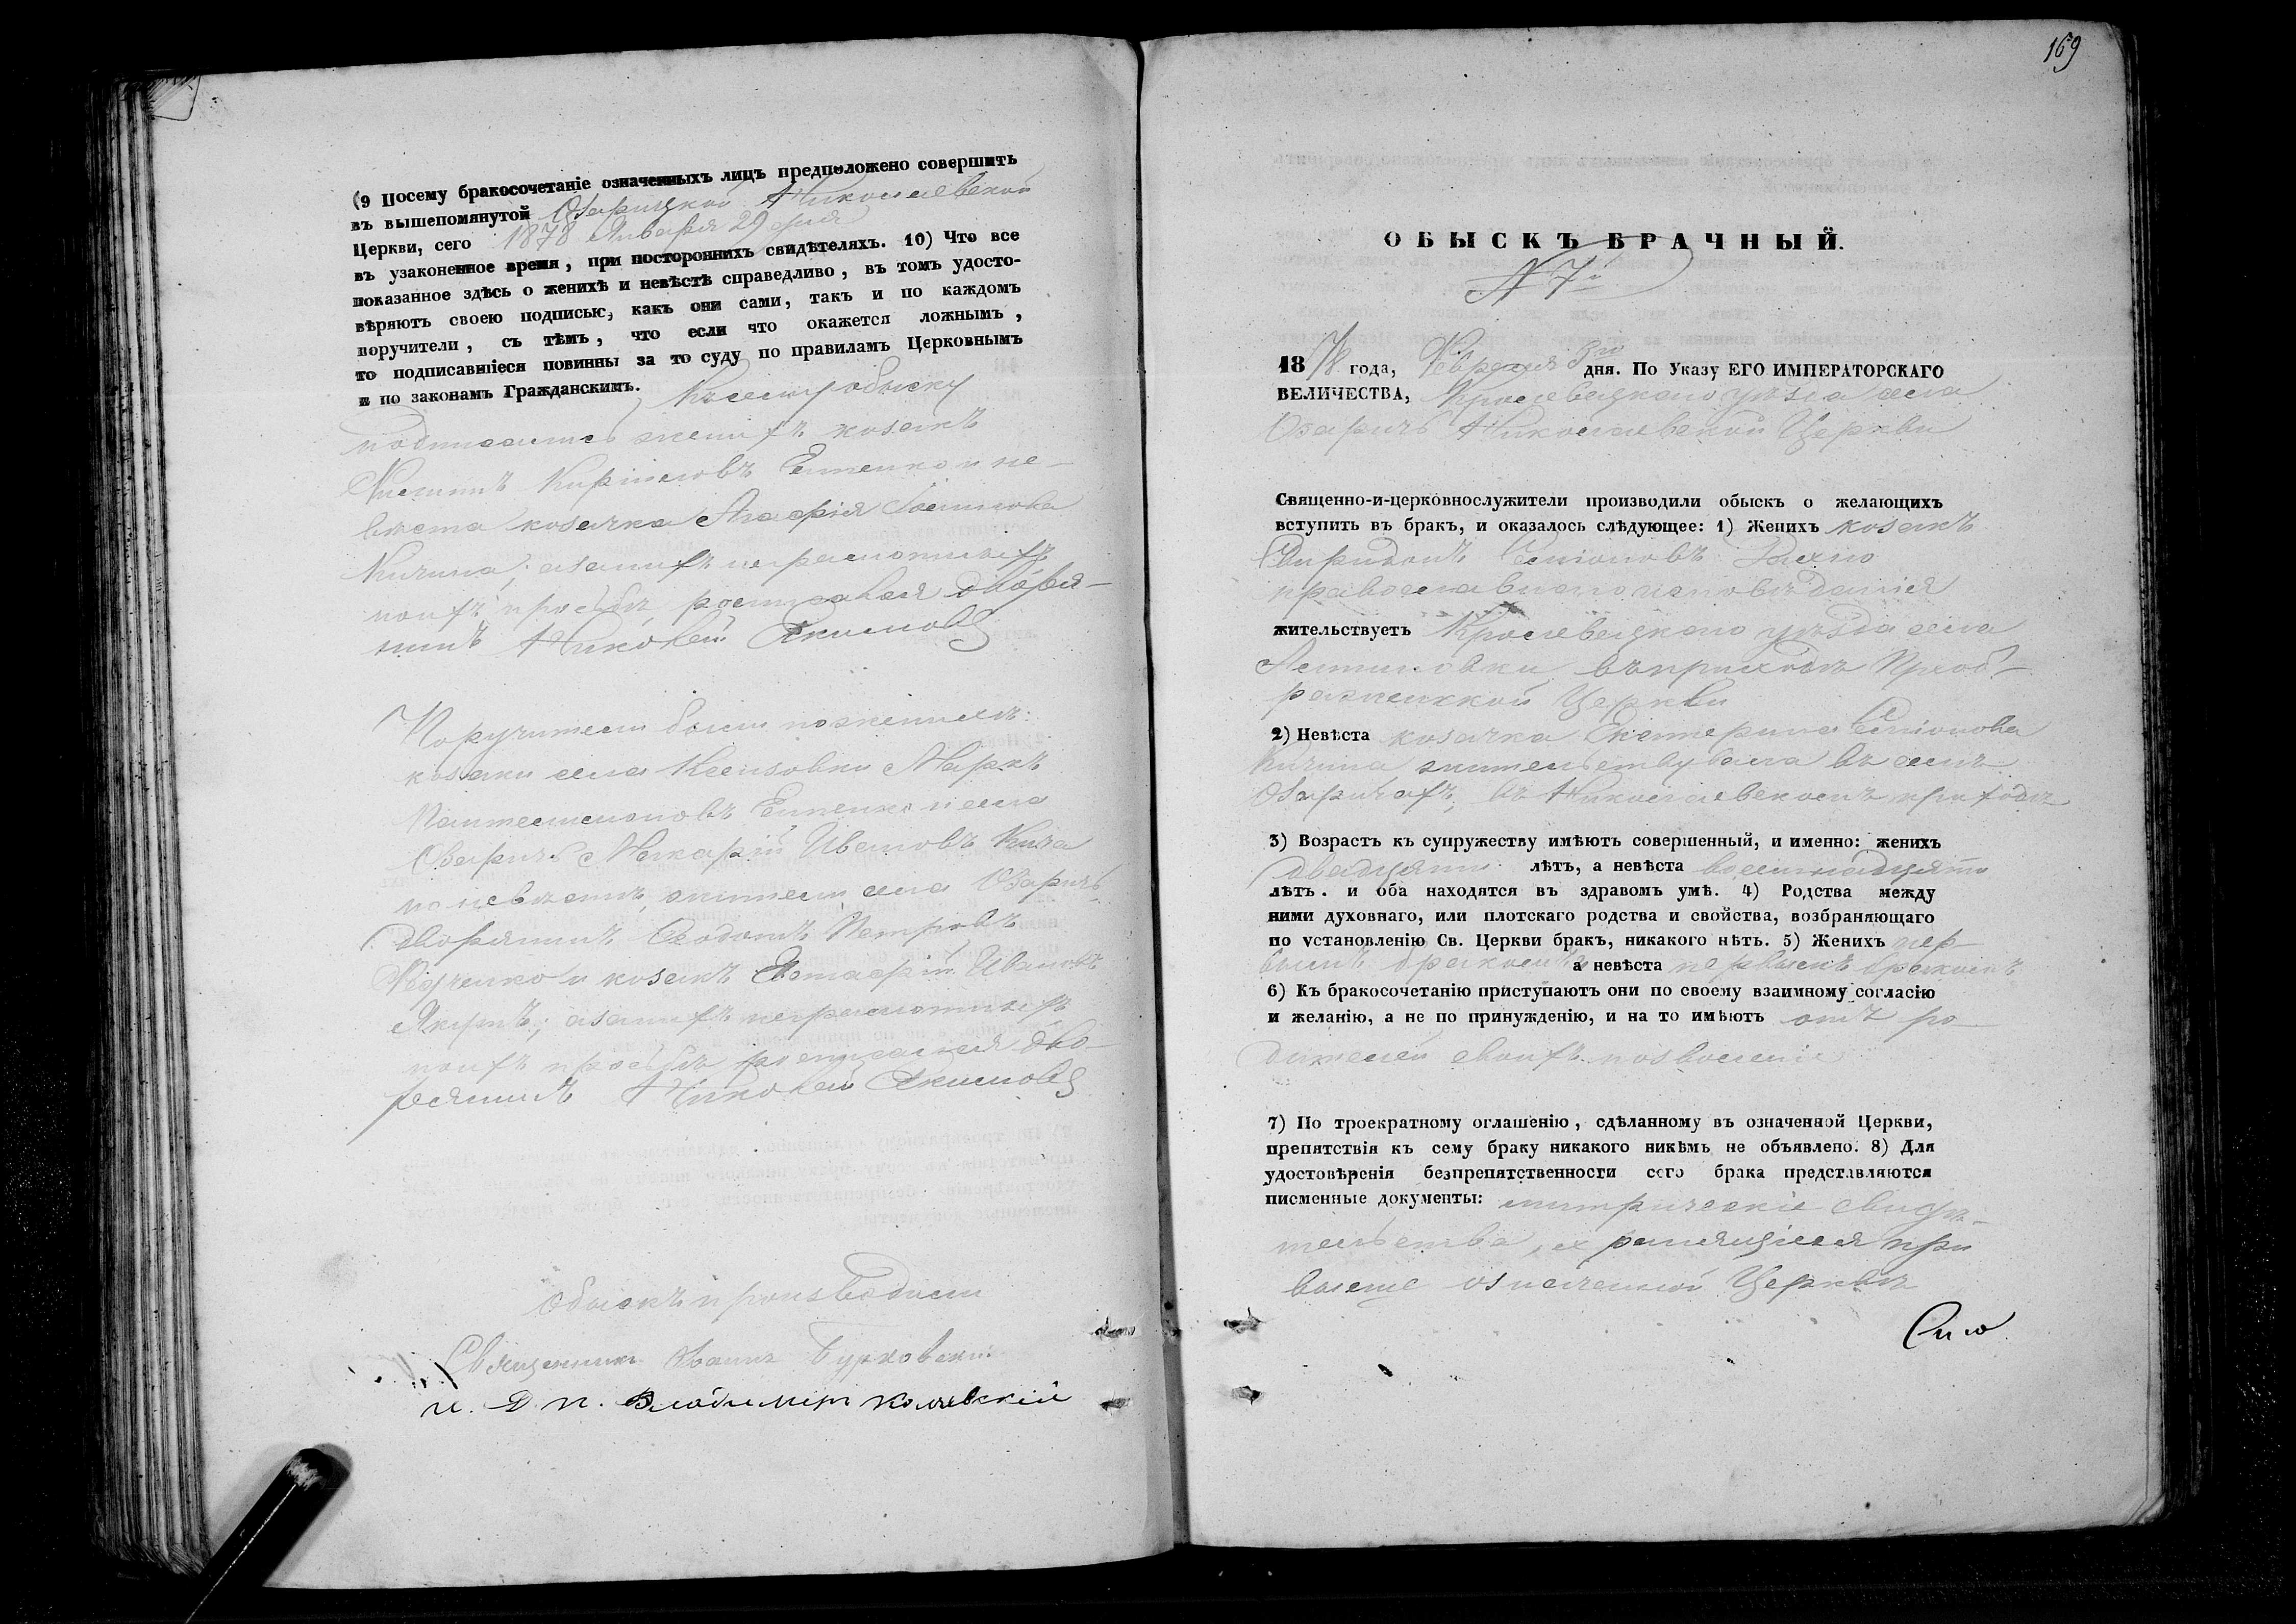 (9 Посему бракосочетаніе означенныхъ лицъ предположено совершить
въ вышепомянутой Озарицкой Николаевской
Церкви, сего 1878 Января 29 дня
въ узаконенное время, при постороннихъ свидѣтеляхъ. 10) Что все
показанное здѣсь о женихѣ и невѣстѣ справедливо, въ томъ удосто-
вѣряютъ своею подписью, какъ они сами, такъ и по каждомъ
поручители, съ тѣмъ, что если что окажется ложнымъ,
то подписавшіеся повинны за то суду по правиламъ Церковнымъ
и по законамъ Гражданскимъ. Къ сему обыску
подписались женихъ козакъ
Кириловъ Евтенко и не-
вѣста козачка Агафія
Кичина; а за нихъ неграмотныхъ
по ихъ просьбѣ росписался дворя-
нинъ Николай Якимовъ
Поручители были по женихѣ:
козаки села Маркъ
Пантелеимоновъ Евтенко и села
Озаричъ Макарій Ивановъ Кича
по невѣстѣ, жители села Озаричъ
дворянинъ Петровъ
и козакъ Евстафій Ивановъ
а за нихъ неграмотныхъ
по ихъ просьбѣ росписался дво-
рянинъ Николай Якимовъ
Обыскъ производили
Священникъ Іоаннъ Бурковскій
и. д. п. Владимиръ
169
ОБЫСКЪ БРАЧНЫЙ.
№ 7й
1878 года, Февраля 3го дня. По Указу ЕГО ИМПЕРАТОРСКАГО
ВЕЛИЧЕСТВА, Кролевецкаго уѣзда села
Озаричъ Николаевской Церкви
Священно-и-церковнослужители производили обыскъ о желающихъ
вступить въ бракъ, и оказалось слѣдующее: 1) Женихъ козакъ
Спиридонъ
православнаго исповѣданія
жительствуетъ Кролевецкаго уѣзда села
въ приходѣ Преоб-
раженской Церкви
2) Невѣста козачка Екатерина
Кичина жительствовала въ селѣ
Озаричахъ, въ Николаевскомъ приходѣ
3) Возрастъ къ супружеству имѣютъ совершенный, и именно: женихъ
двадцати лѣтъ, а невѣста восемнадцати
лѣтъ. и оба находятся въ здравомъ умѣ. 4) Родства между
ними духовнаго, или плотскаго родства и свойства, возбраняющаго
по установленію Св. Церкви бракъ, никакого нѣтъ. 5) Женихъ пер-
вымъ бракомъ а невѣста первымъ бракомъ
6) Къ бракосочетанію приступаютъ они по своему взаимному согласію
и желанію, а не по принужденію, и на то имѣютъ отъ ро-
дителей своихъ позволеніе
7) По троекратному оглашенію, сдѣланному въ означенной Церкви,
препятствія къ сему браку никакого никѣмъ не объявлено. 8) Для
удостовѣренія безпрепятственности сего брака представляются
писменные документы: митрическіе свидѣ-
тельства, хранящіеся при
выше означенной Церквѣ